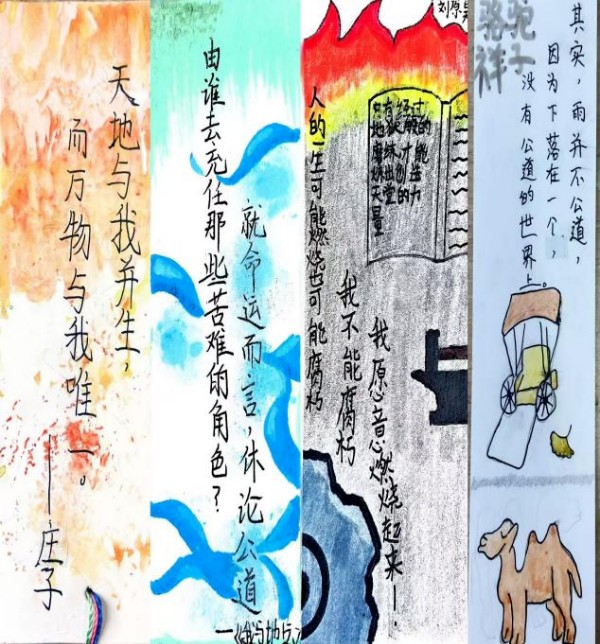 天地与我并生，
而万物与我唯一。
——庄子
由谁去充任那些苦难的角色？
就命运而言，休论公道
—《我与地坛
人的一生可能燃烧也可能腐朽
我不能腐朽
我愿意燃烧起来——
骆驼
祥子
其实，雨并不公道，
因为下落在一个，
没有公道的世界上。